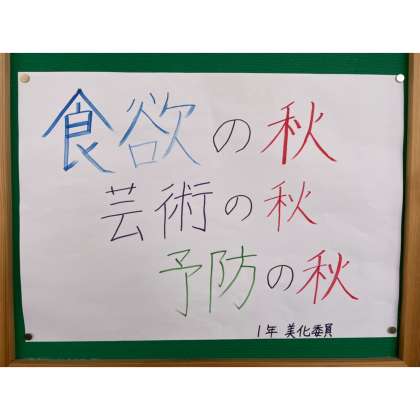 食欲の秋
芸術の秋
予防の秋
1年 美化委員